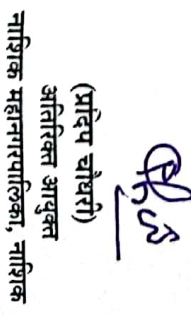 (प्रदिप चौधरी)
अतिरिक्त आयुक्त
नाशिक महानगरपालिका, नाशिक